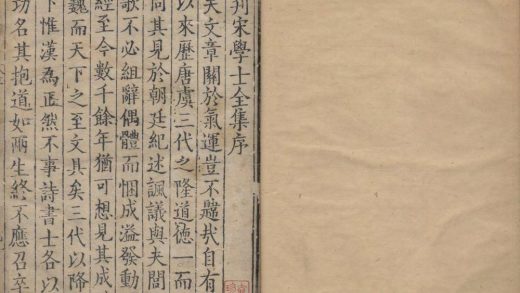 刋宋學士全集序
夫文章關於氣運豈不韙㢤自有
以来歷唐虞三代之隆道徳一而
同其見於朝廷紀述諷議與夫閭
歌不必組辭偶體而悃成溢發動
經至今數千餘年猶可想見其成
巍而天下之至文具矣三代以降
下惟漢為正然不事詩書士各以
功名其抱道如兩生終不應召卒